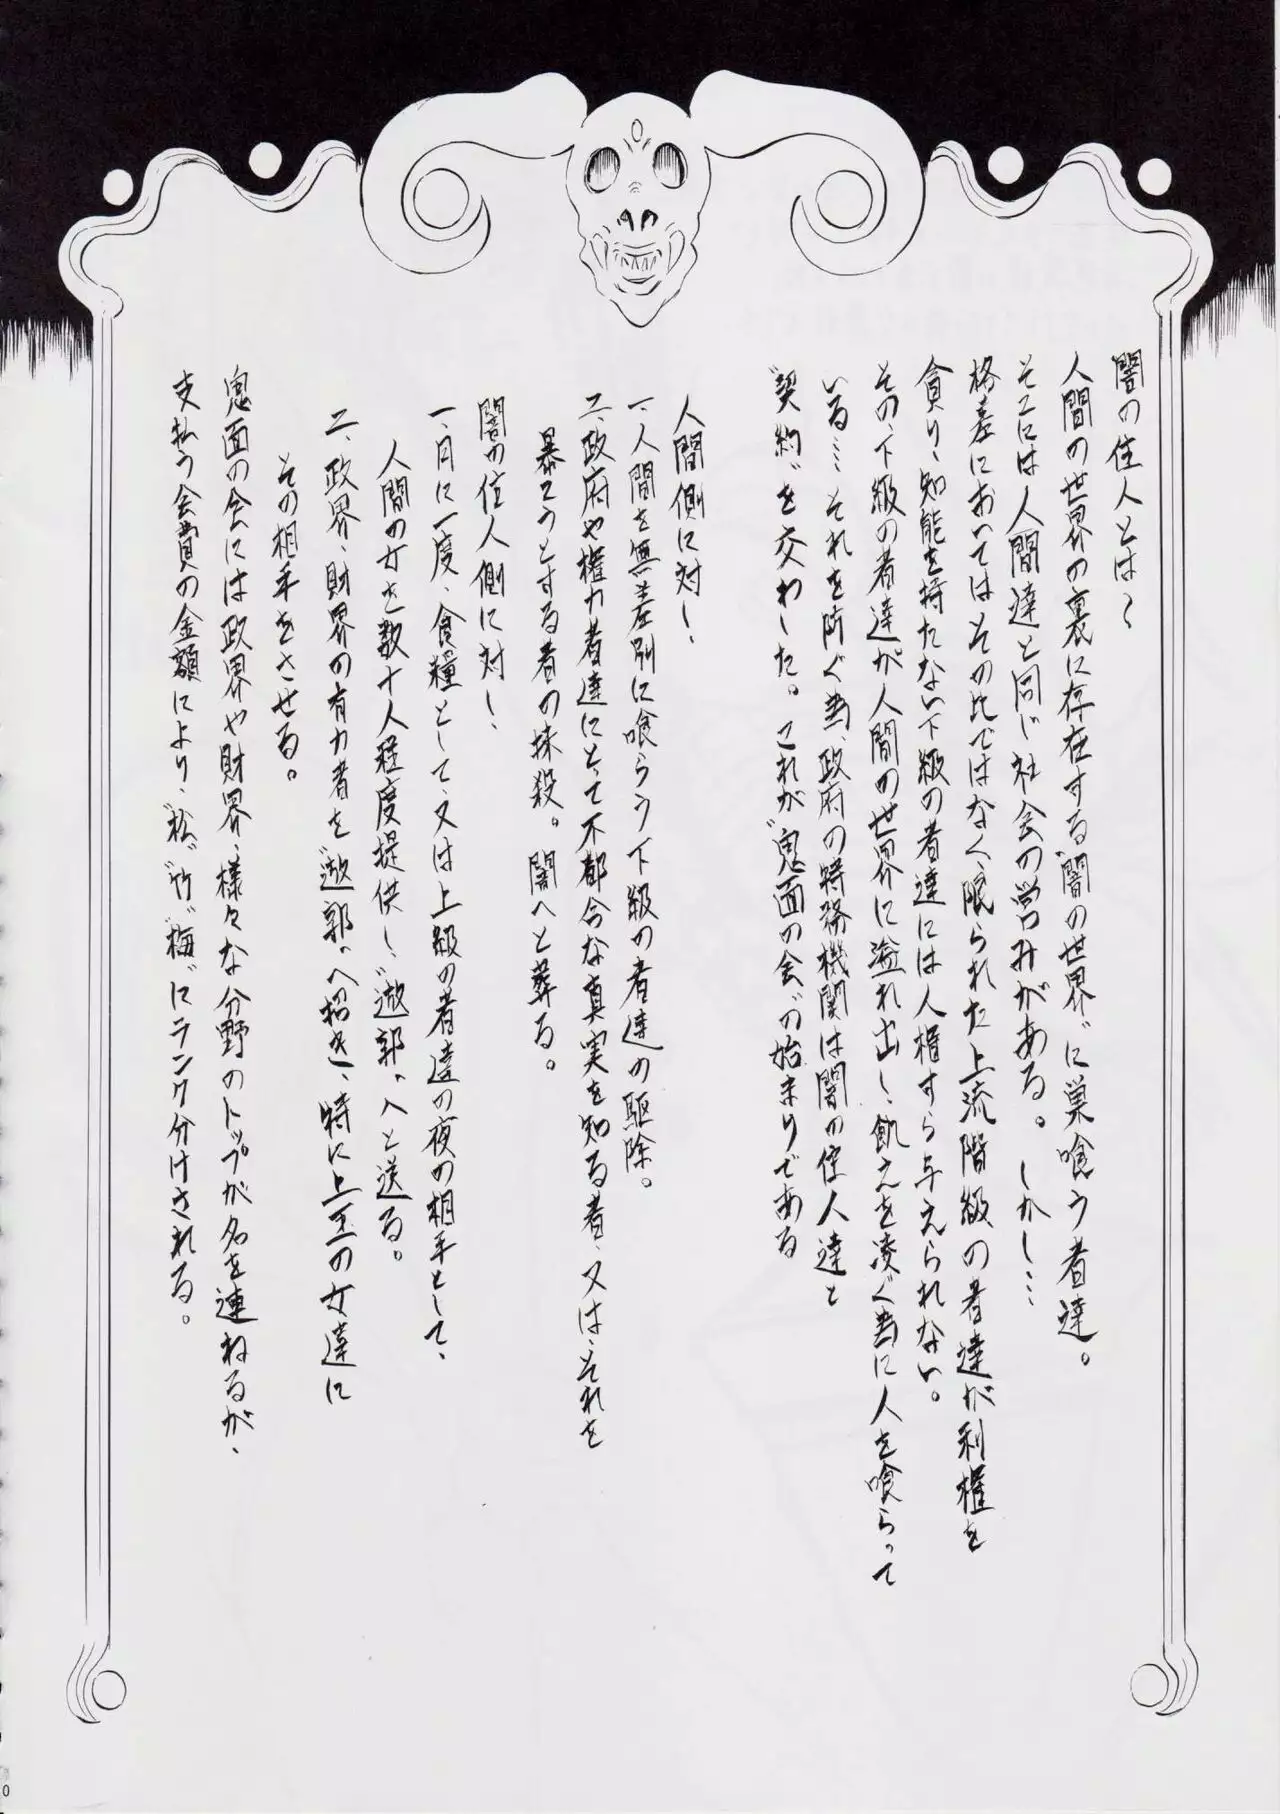 闇の住人とは〜
人間の世界の裏に存在する〝闇の世界〟に巣喰う者達。
そこには人間達と同じ社会の営みがある。しかし…
格差においてはその比ではなく、限られた上流階級の者達が利権を
貪り、知能を持たない下級の者達には人権すら与えられない。
その、下級の者達が人間の世界に溢れ出し、飢えを凌ぐ為に人を喰らって
いる…それを防ぐ為、政府の特務機関は闇の住人達と
〝契約〟を交わした。これが〝鬼面の会〟の始まりである
人間側に対し、
一、人間を無差別に喰らう下級の者達の駆除。
二、政府や権力者達にとって不都合な真実を知る者、又は、それを
暴こうとする者の抹殺。闇へと葬る。
闇の住人側に対し、
一、月に一度、食糧として、又は上級の者達の夜の相手として、
人間の女を数十人程度提供し、〝遊郭〟へと送る。
二、政界、財界の有力者を〝遊郭〟へ招き、特に上玉の女達に
その相手をさせる。
鬼面の会には政界や財界、様々な分野のトップが名を連ねるが、
支払う会費の金額により、〝松〟〝竹〟〝梅〟にランク分けされる。
0